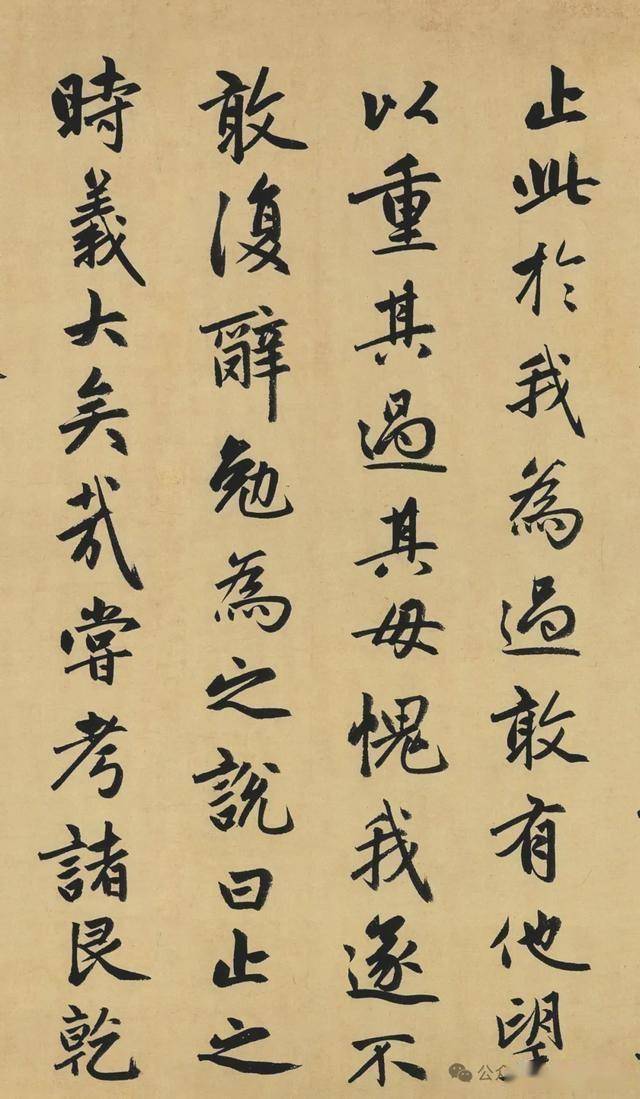 止此於我為過敢有他望
以重其過其毋愧我遂不
敢復辭勉為之說曰止之
時義大矣哉嘗考諸艮乾
公